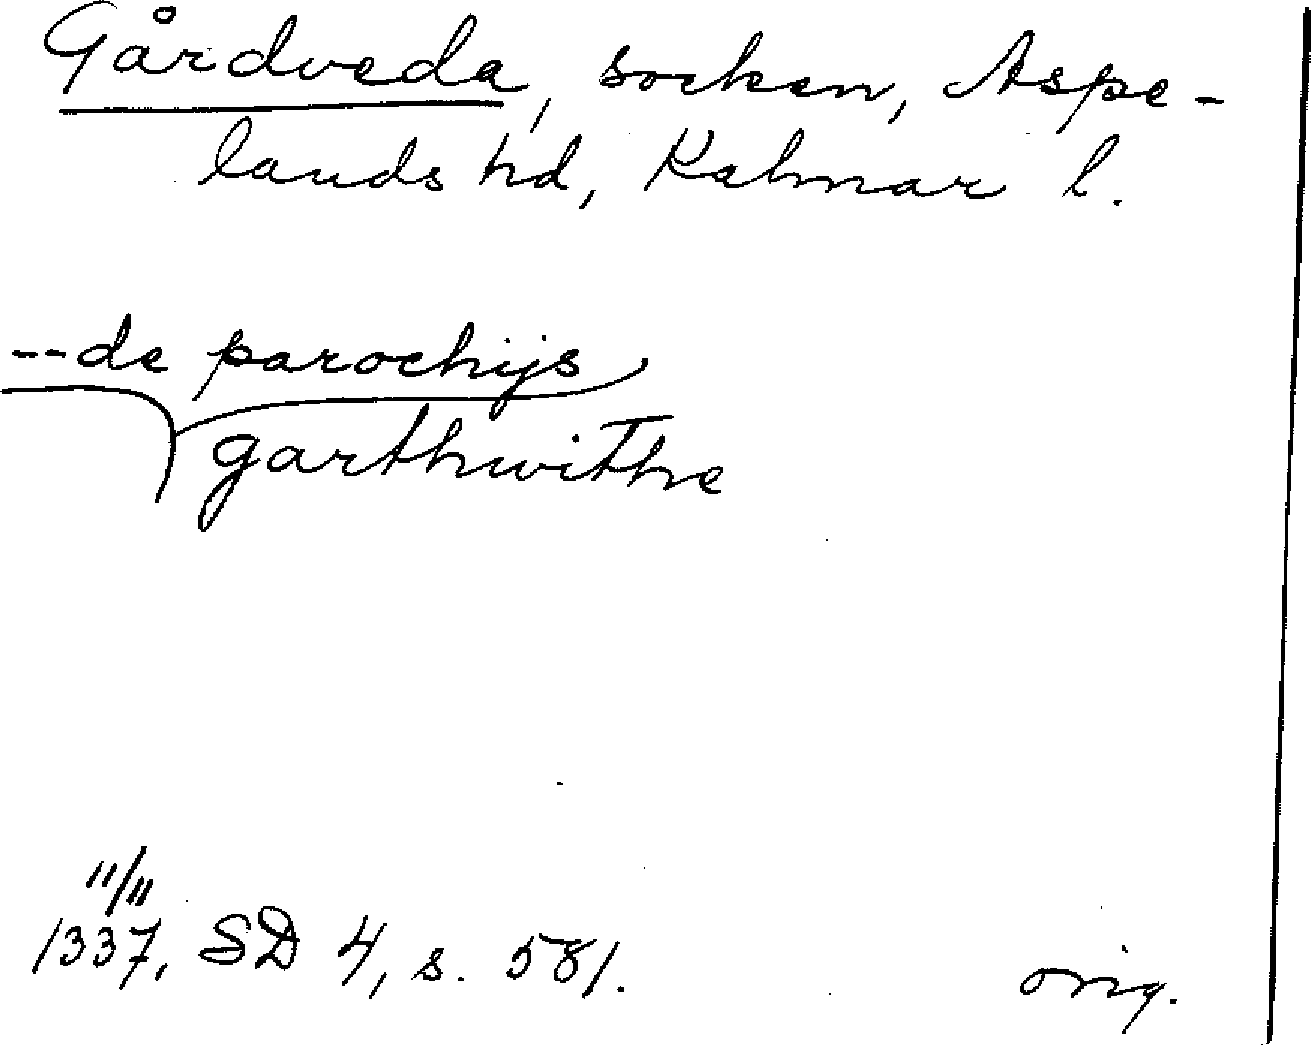 Gårdveda, socken, Aspe-
lands hd, Kalmar l.
--de parochijs
garthwithe
11/11
1337, SD 4, s. 581.
orig.